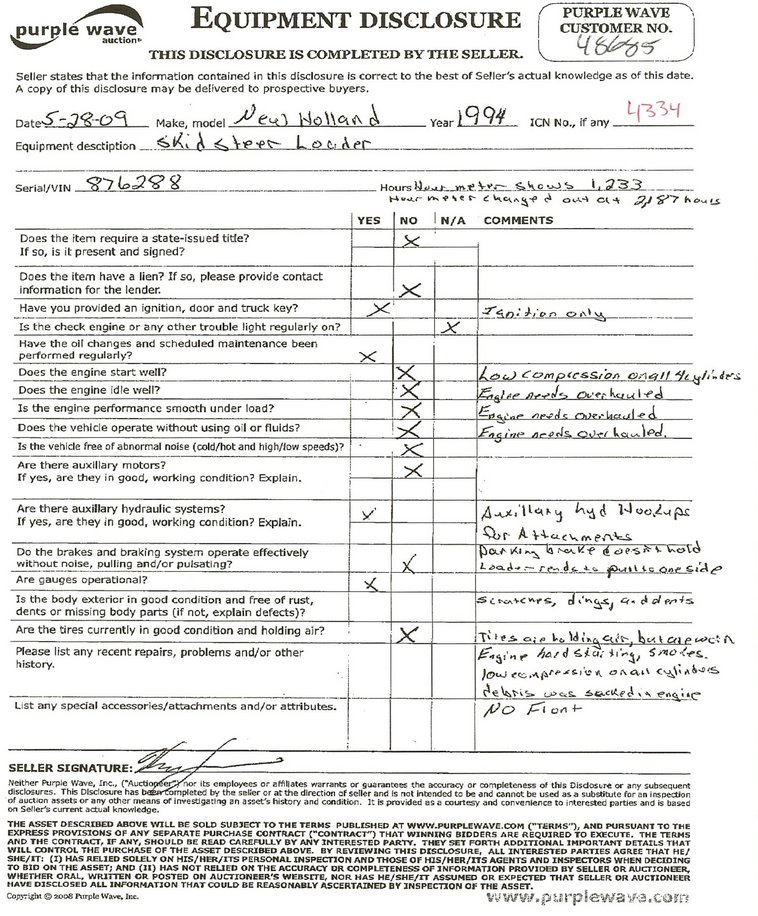 purple wave
auction
EQUIPMENT DISCLOSURE
THIS DISCLOSURE IS COMPLETED BY THE SELLER.
PURPLE WAVE
CUSTOMER NO.
48685
Seller states that the information contained in this disclosure is correct to the best of Seller's actual knowledge as of this date.
A copy of this disclosure may be delivered to prospective buyers.
Date 5-28-09 Make, model New Holland Year 1994 ICN No., if any 4334
Equipment desctiption Skid Steer Loader
Serial/VIN 876288 Hours Hour meter shows 1,233
Hour meter changed out at 2,187 hours
YES NO N/A COMMENTS
Does the item require a state-issued title? X
If so, is it present and signed?
Does the item have a lien? If so, please provide contact
information for the lender. X
Have you provided an ignition, door and truck key? X Ignition only
Is the check engine or any other trouble light regularly on? X
Have the oil changes and scheduled maintenance been
performed regularly? X
Does the engine start well? X Low compression on all 4 cylinders
Does the engine idle well? X Engine needs overhauled
Is the engine performance smooth under load? X Engine needs overhauled
Does the vehicle operate without using oil or fluids? X Engine needs overhauled.
Is the vehicle free of abnormal noise (cold/hot and high/low speeds)? X
Are there auxillary motors? X
If yes, are they in good, working condition? Explain.
Are there auxillary hydraulic systems? X Auxillary hyd Hookups
If yes, are they in good, working condition? Explain. for Attachments
Do the brakes and braking system operate effectively parking brake doesn't hold
without noise, pulling and/or pulsating? X Loader tends to pull to one side
Are gauges operational? X
Is the body exterior in good condition and free of rust, scratches, dings, and dents
dents or missing body parts (if not, explain defects)?
Are the tires currently in good condition and holding air? X Tires are holding air, but are worn
Please list any recent repairs, problems and/or other Engine hard starting, smokes.
history. low compression on all cylinders
debris was sucked in engine
List any special accessories/attachments and/or attributes. NO Front
SELLER SIGNATURE:
Neither Purple Wave, Inc., ("Auctioneer") nor its employees or affiliates warrants or guarantees the accuracy or completeness of this Disclosure or any subsequent
disclosures. This Disclosure has been completed by the seller or at the direction of seller and is not intended to be and cannot be used as a substitute for an inspection
of auction assets or any other means of investigating an asset's history and condition. It is provided as a courtesy and convenience to interested parties and is based
on Seller's current actual knowledge.
THE ASSET DESCRIBED ABOVE WILL BE SOLD SUBJECT TO THE TERMS PUBLISHED AT WWW.PURPLEWAVE.COM ("TERMS"), AND PURSUANT TO THE
EXPRESS PROVISIONS OF ANY SEPARATE PURCHASE CONTRACT ("CONTRACT") THAT WINNING BIDDERS ARE REQUIRED TO EXECUTE. THE TERMS
AND THE CONTRACT, IF ANY, SHOULD BE READ CAREFULLY BY ANY INTERESTED PARTY. THEY SET FORTH ADDITIONAL IMPORTANT DETAILS THAT
WILL CONTROL THE PURCHASE OF THE ASSET DESCRIBED ABOVE. BY REVIEWING THIS DISCLOSURE, ALL INTERESTED PARTIES AGREE THAT HE/
SHE/IT: (I) HAS RELIED SOLELY ON HIS/HER/ITS PERSONAL INSPECTION AND THOSE OF HIS/HER/ITS AGENTS AND INSPECTORS WHEN DECIDING
TO BID ON THE ASSET; AND (II) HAS NOT RELIED ON THE ACCURACY OR COMPLETENESS OF INFORMATION PROVIDED BY SELLER OR AUCTIONEER,
WHETHER ORAL, WRITTEN OR POSTED ON AUCTIONEER'S WEBSITE, NOR HAS HE/SHE/IT ASSUMED OR EXPECTED THAT SELLER OR AUCTIONEER
HAVE DISCLOSED ALL INFORMATION THAT COULD BE REASONABLY ASCERTAINED BY INSPECTION OF THE ASSET.
Copyright © 2008 Purple Wave, Inc. www.purplewave.com